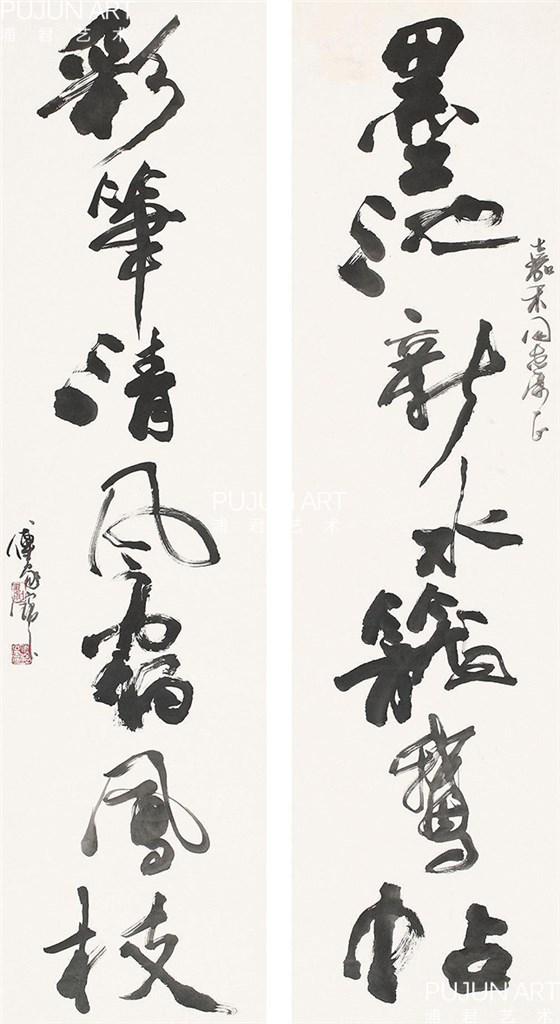 PUJUN ART
浦君艺术
墨池新水籠鵞帖
嘉禾同志属正
彩筆清風鳳枝
傅家寶
PUJUN ART
浦君艺术
PUJUN ART
浦君艺术